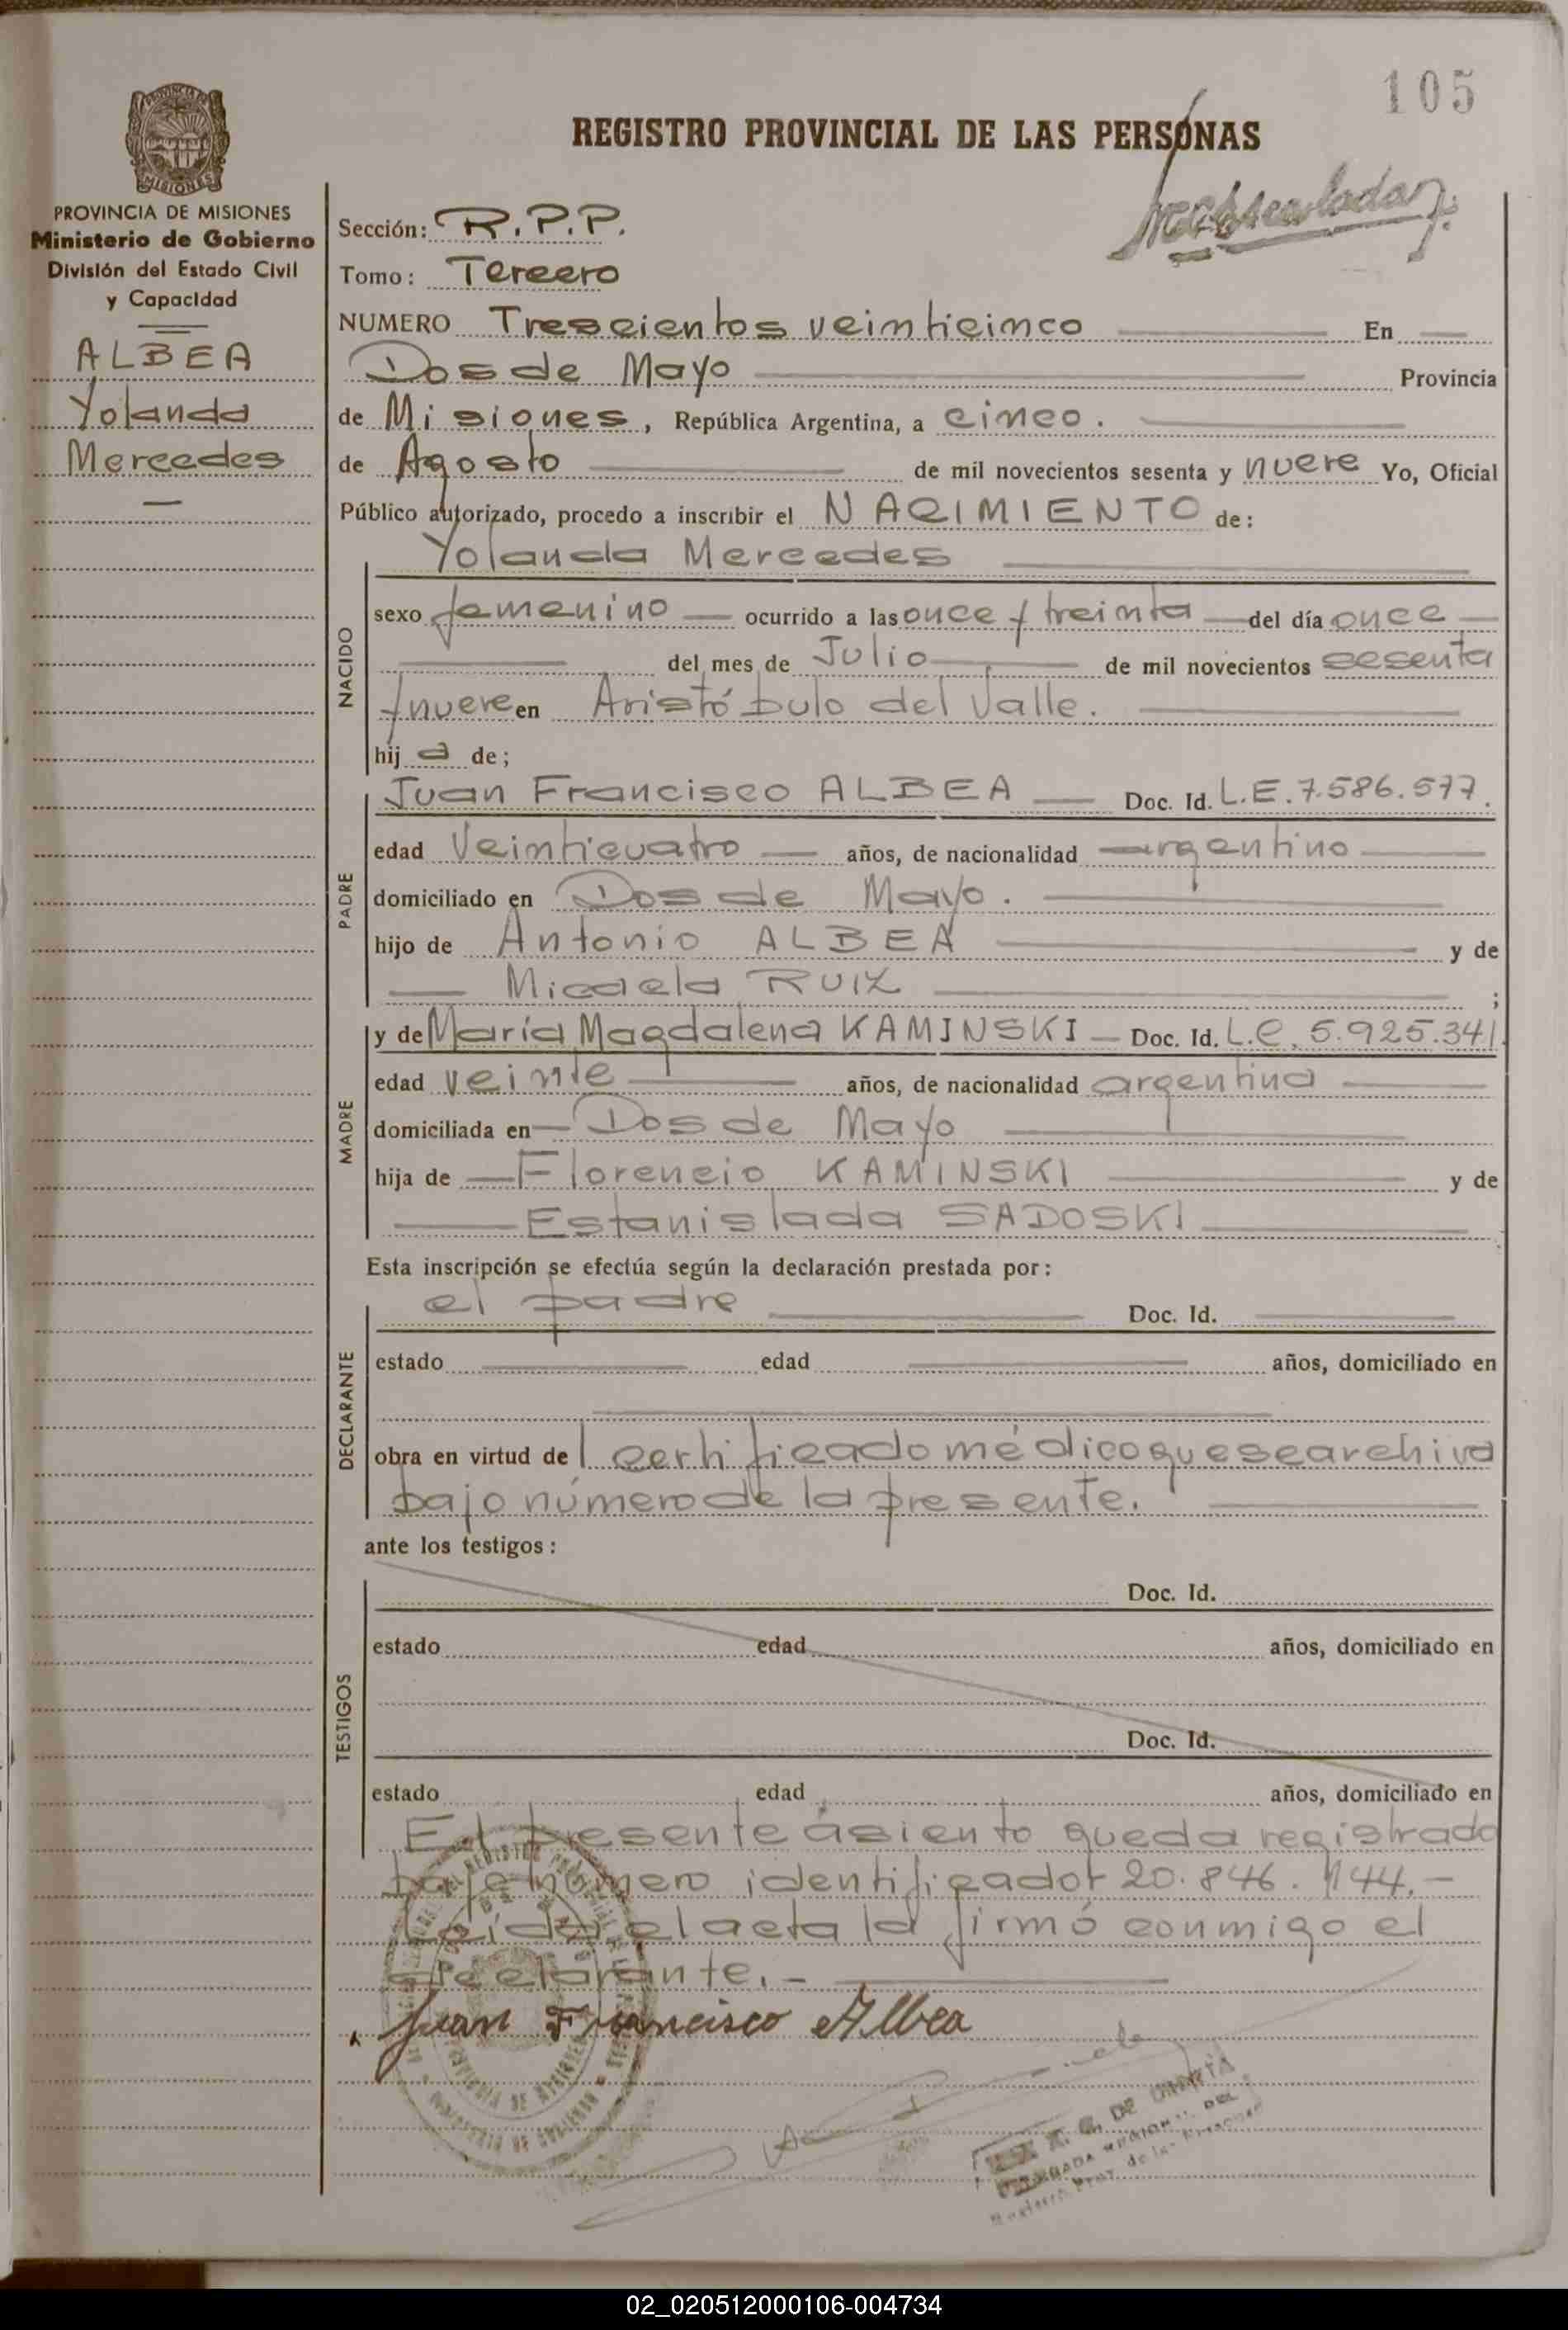 105
REGISTRO PROVINCIAL DE LAS PERSONAS
PROVINCIA DE MISIONES
Ministerio de Gobierno
División del Estado Civil
y Capacidad
ALBEA
Yolanda
Mercedes
Sección: R.P.P.
Tomo: Tercero
NUMERO Trescientos veinticinco En
Dos de Mayo Provincia
de Misiones, República Argentina, a cinco.
de Agosto de mil novecientos sesenta y nueve Yo, Oficial
Público autorizado, procedo a inscribir el NACIMIENTO de:
Yolanda Mercedes
NACIDO
sexo femenino ocurrido a las once y treinta del día once
del mes de Julio de mil novecientos sesenta
y nueve en Aristóbulo del Valle.
hija de;
PADRE
Juan Francisco ALBEA Doc. Id. L.E. 7.586.577.
edad Veinticuatro años, de nacionalidad argentino
domiciliado en Dos de Mayo.
hijo de Antonio ALBEA y de
Micaela RUIZ ;
MADRE
y de María Magdalena KAMINSKI Doc. Id. L.C. 5.925.341.
edad veinte años, de nacionalidad argentina
domiciliada en Dos de Mayo
hija de Florencio KAMINSKI y de
Estanislada SADOSKI
Esta inscripción se efectúa según la declaración prestada por:
DECLARANTE
el padre Doc. Id.
estado edad años, domiciliado en
obra en virtud del certificado médico que se archiva
bajo número de la presente.
ante los testigos:
TESTIGOS
Doc. Id.
estado edad años, domiciliado en
Doc. Id.
estado edad años, domiciliado en
El presente asiento queda registrado
bajo número identificador 20.846.144.-
Leída el acta la firmó conmigo el
declarante.-
Juan Francisco Albea
02_020512000106-004734